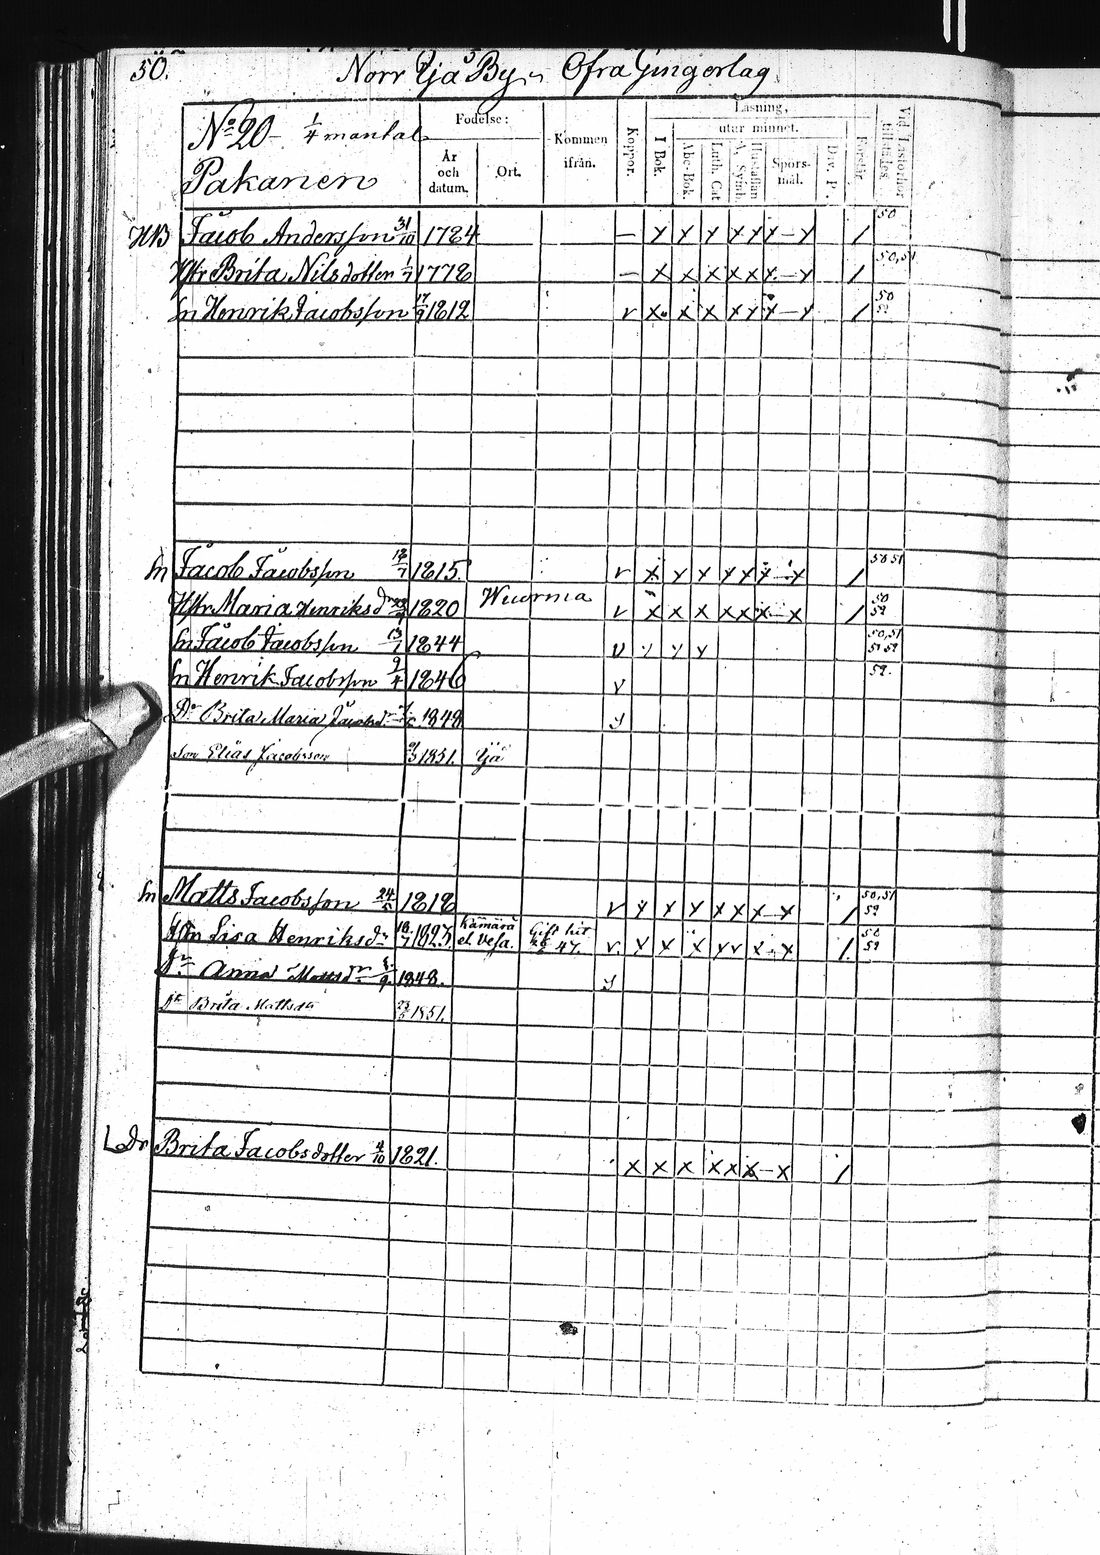 50.
Norr Yjå By Öfra Gingerlag
No 20 1/4 mantal
Pakanen
Födelse:
År och datum.
Ort.
Kommen ifrån.
Koppor.
Läsning,
utur minnet.
I Bok.
Abc-Bok.
Luth. Cat
A. Symb.
Hustaflan
Spörsmål.
Dav. P.
Förstår
Vid Läsförhör tillstädes.
HB Jacob Andersson 31/10 1784 — x x x x x x — x / 50
Hstr Brita Nilsdotter 1/7 1778 — x x x x x x — x / 50,51
Sn Henrik Jacobsson 17/9 1812 v x x x x x x — x / 50 52
Sn Jacob Jacobsson 18/7 1815. v x x x x x x — x / 50 51
Hstr Maria Henriksdr 1820 Wuorma v x x x x x x — x / 50 52
Sn Jacob Jacobsson 13/1 1844 v x x x 50,51
Sn Henrik Jacobsson 9/4 1846 v 52.
Dr Brita Maria Jacobsdr 1848
Son Elias Jacobsson 9/3 1851. Yjå
Sn Matts Jacobsson 24/5 1818 v x x x x x x — x / 50,51 52
Hstn Lisa Henriksdr 18/7 1825. Kämärä el. Vesa. Gift hit 47. v. x x x x v x — x /. 50 52
Dr Anna Mattsdr 8/9 1848.
Dr Brita Mattsdr 23/5 1851.
Dr Brita Jacobsdotter 4/10 1821. x x x x x x — x /